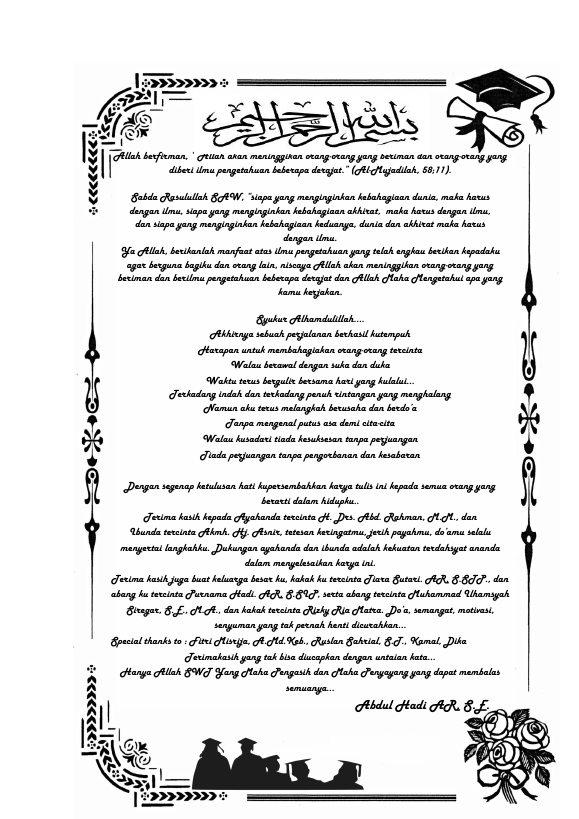 بسم الله الرحمن الرحيم
Allah berfirman, " Allah akan meninggikan orang-orang yang beriman dan orang-orang yang
diberi ilmu pengetahuan beberapa derajat." (Al-Mujadilah, 58;11).
Sabda Rasulullah SAW, "siapa yang menginginkan kebahagiaan dunia, maka harus
dengan ilmu, siapa yang menginginkan kebahagiaan akhirat, maka harus dengan ilmu,
dan siapa yang menginginkan kebahagiaan keduanya, dunia dan akhirat maka harus
dengan ilmu.
Ya Allah, berikanlah manfaat atas ilmu pengetahuan yang telah engkau berikan kepadaku
agar berguna bagiku dan orang lain, niscaya Allah akan meninggikan orang-orang yang
beriman dan berilmu pengetahuan beberapa derajat dan Allah Maha Mengetahui apa yang
kamu kerjakan.
Syukur Alhamdulillah....
Akhirnya sebuah perjalanan berhasil kutempuh
Harapan untuk membahagiakan orang-orang tercinta
Walau berawal dengan suka dan duka
Waktu terus bergulir bersama hari yang kulalui...
Terkadang indah dan terkadang penuh rintangan yang menghalang
Namun aku terus melangkah berusaha dan berdo'a
Tanpa mengenal putus asa demi cita-cita
Walau kusadari tiada kesuksesan tanpa perjuangan
Tiada perjuangan tanpa pengorbanan dan kesabaran
Dengan segenap ketulusan hati kupersembahkan karya tulis ini kepada semua orang yang
berarti dalam hidupku..
Terima kasih kepada Ayahanda tercinta H. Drs. Abd. Rahman, M.M., dan
Ibunda tercinta Akmh. Hj. Asnir, tetesan keringatmu, jerih payahmu, do'amu selalu
menyertai langkahku. Dukungan ayahanda dan ibunda adalah kekuatan terdahsyat ananda
dalam menyelesaikan karya ini.
Terima kasih juga buat keluarga besar ku, kakak ku tercinta Tiara Sutari. AR, S.STP., dan
abang ku tercinta Purnama Hadi. AR, S.SIP, serta abang tercinta Muhammad Uhamsyah
Siregar, S.E., M.A., dan kakak tercinta Rizky Ria Matra. Do'a, semangat, motivasi,
senyuman yang tak pernah henti dicurahkan...
Special thanks to : Fitri Misrija, A.Md.Keb., Ruslan Sahrial, S.T., Kamal, Dika
Terimakasih yang tak bisa diucapkan dengan untaian kata...
Hanya Allah SWT Yang Maha Pengasih dan Maha Penyayang yang dapat membalas
semuanya...
Abdul Hadi AR, S.E.